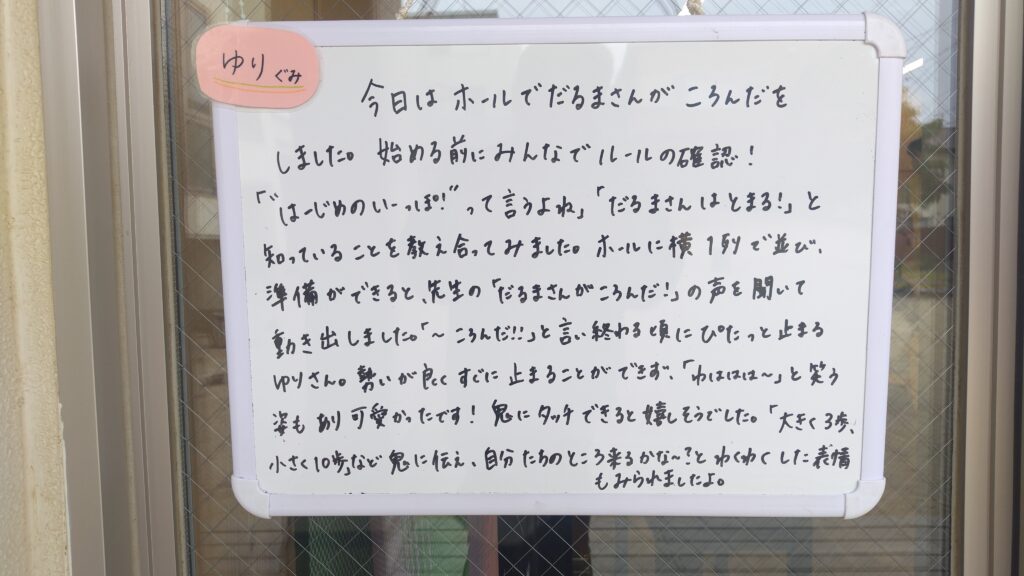 ゆりぐみ
今日は ホールでだるまさんが ころんだを
しました。 始める前にみんなでルールの確認！
「"はーじめのいーっぽ!"って言うよね」「だるまさんはとまる！」と
知っていることを教え合ってみました。ホールに横1列で並び、
準備ができると、先生の「だるまさんがころんだ！」の声を聞いて
動き出しました。「～ころんだ!!」と言い終わる頃にぴたっと止まる
ゆりさん。勢いが良くすぐに止まることができず、「わははは～」と笑う
姿もあり可愛かったです！ 鬼にタッチできると嬉しそうでした。「大きく3歩、
小さく10歩」など鬼に伝え、自分たちのところ来るかな～？とわくわくした表情
もみられましたよ。